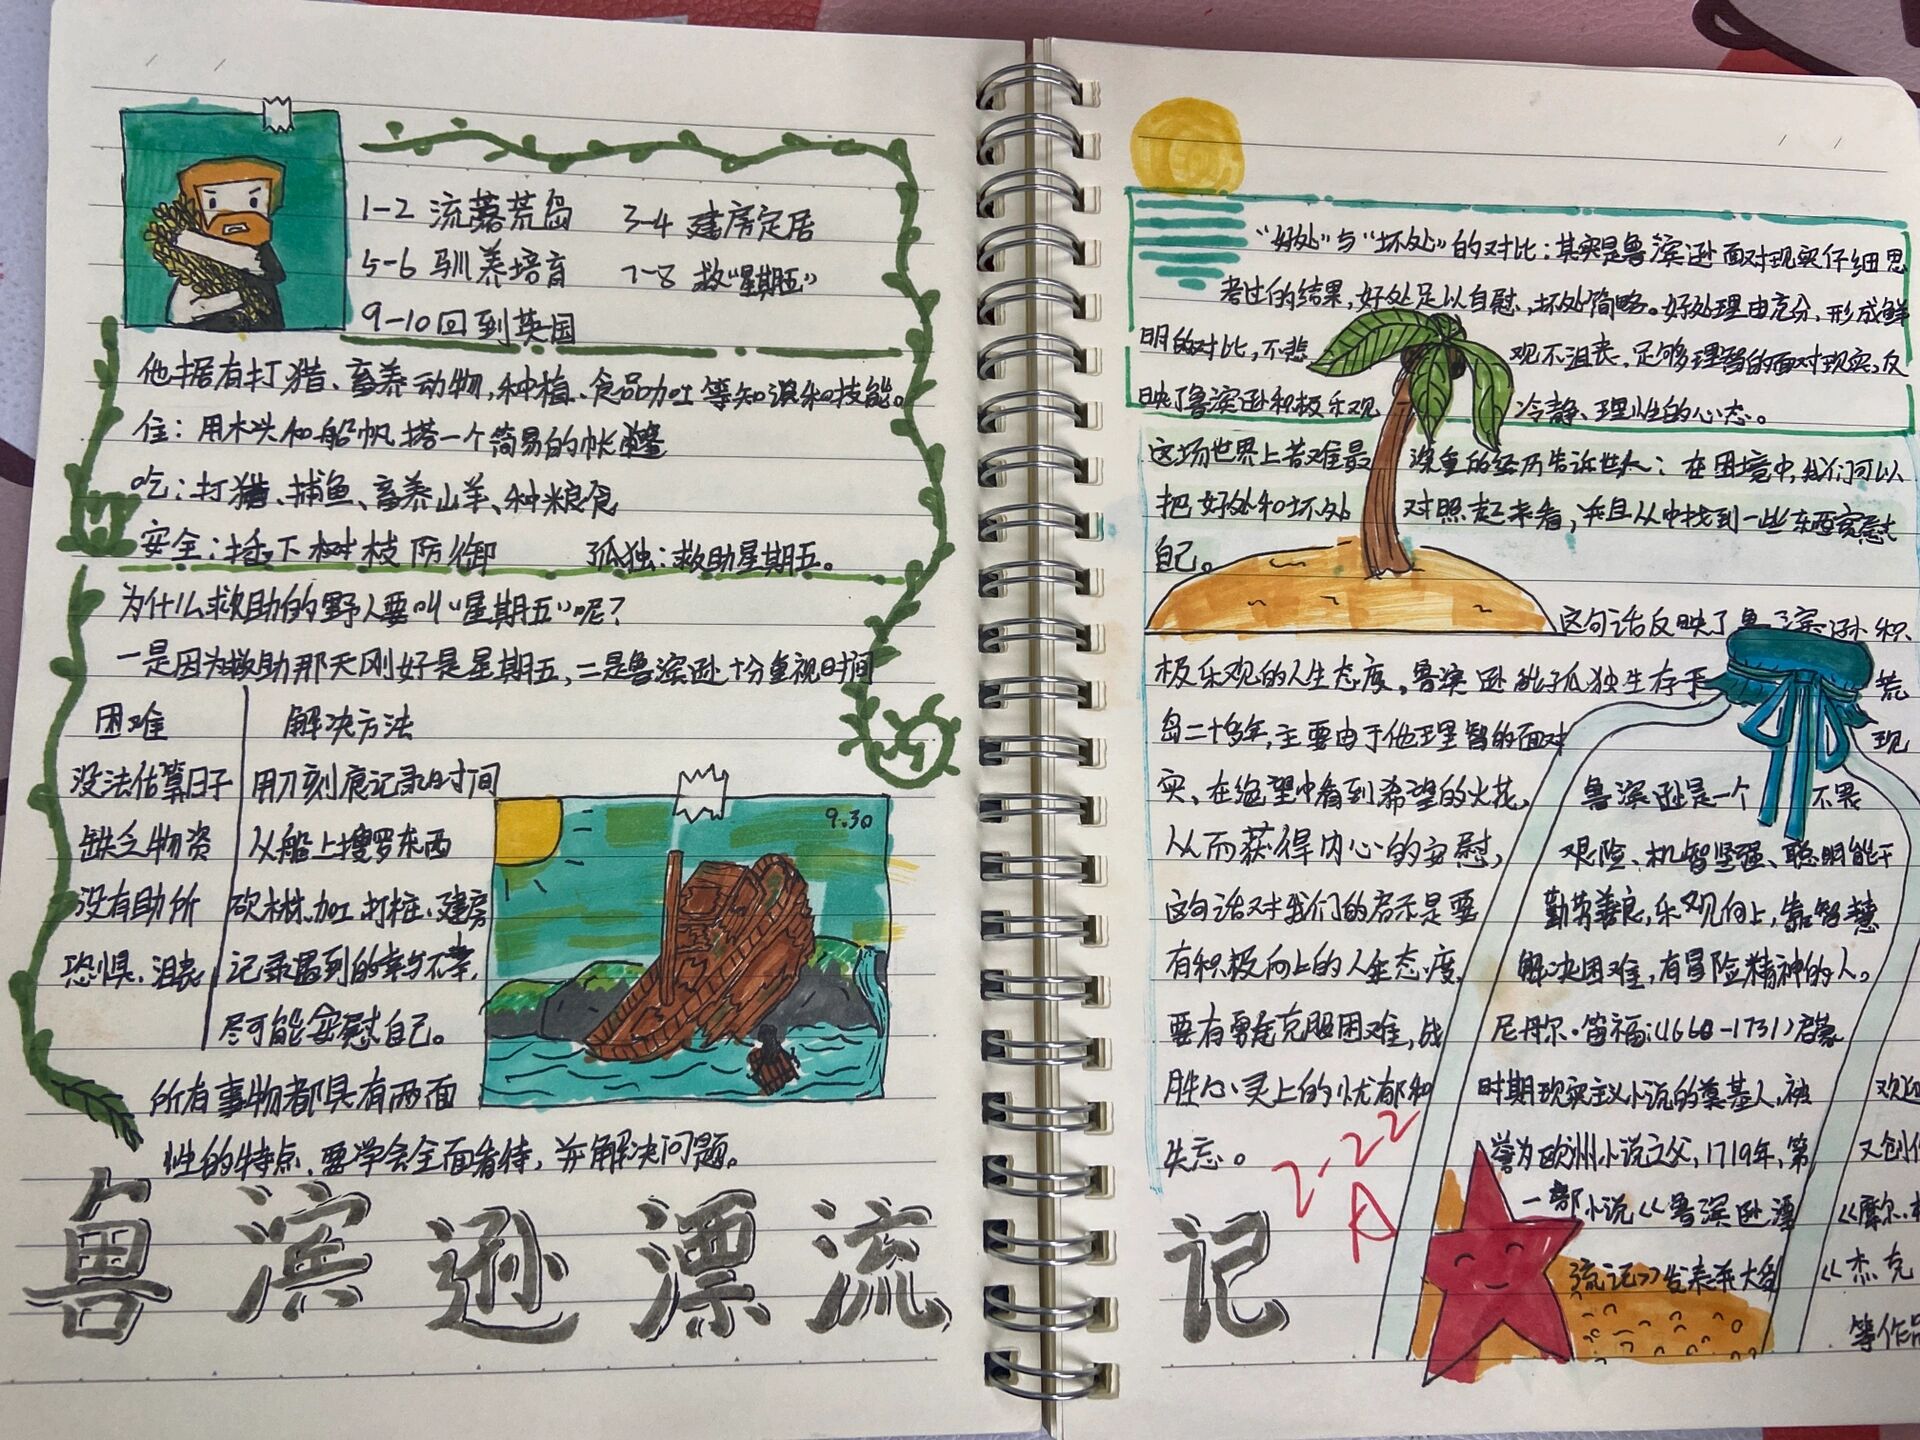 1-2 流落荒岛 3-4 建房定居
5-6 驯养培育 7-8 救“星期五”
9-10 回到英国
他据有打猎、畜养动物,种植、食品加工等知识和技能。
住:用木头和船帆搭一个简易的帐篷
吃:打猎、捕鱼、畜养山羊、种粮食
安全:插下树枝防御 孤独:救助星期五。
为什么救助的野人要叫“星期五”呢?
一是因为救助那天刚好是星期五,二是鲁滨逊十分重视时间
困难 解决方法
没法估算日子 用刀刻痕记录时间
缺乏物资 从船上搜罗东西
没有助所 砍树、加工、打桩、建房
恐惧、沮丧 记录遇到的幸与不幸,
尽可能安慰自己。
9.30
所有事物都具有两面
性的特点,要学会全面看待,并解决问题。
鲁滨逊漂流
“好处”与“坏处”的对比:其实是鲁滨逊面对现实仔细思
考过的结果,好处足以自慰,坏处简略。好处理由充分,形成鲜
明的对比,不悲观不沮丧,足够理智的面对现实,反
映了鲁滨逊积极乐观冷静、理性的心态。
这场世界上苦难最深重的经历告诉世人:在困境中,我们可以
把好处和坏处对照起来看,并且从中找到一些东西安慰
自己。
这句话反映了鲁滨逊积
极乐观的人生态度,鲁滨逊能孤独生存于荒
岛二十多年,主要由于他理智的面对现
实,在绝望中看到希望的火花,
从而获得内心的安慰,
这句话对我们的启示是要
有积极向上的人生态度,
要有勇气克服困难,战
胜心灵上的忧郁和
失志。
2.22
A
记
鲁滨逊是一个不畏
艰险、机智坚强、聪明能干
勤劳善良,乐观向上,靠智慧
解决困难,有冒险精神的人。
尼丹尔·笛福:(1660-1731)启蒙
时期现实主义小说的奠基人,被
誉为欧洲小说之父,1719年,第
一部小说《鲁滨逊漂
流记》发表并大受
欢迎
又创作
《摩尔·
《杰克
等作品